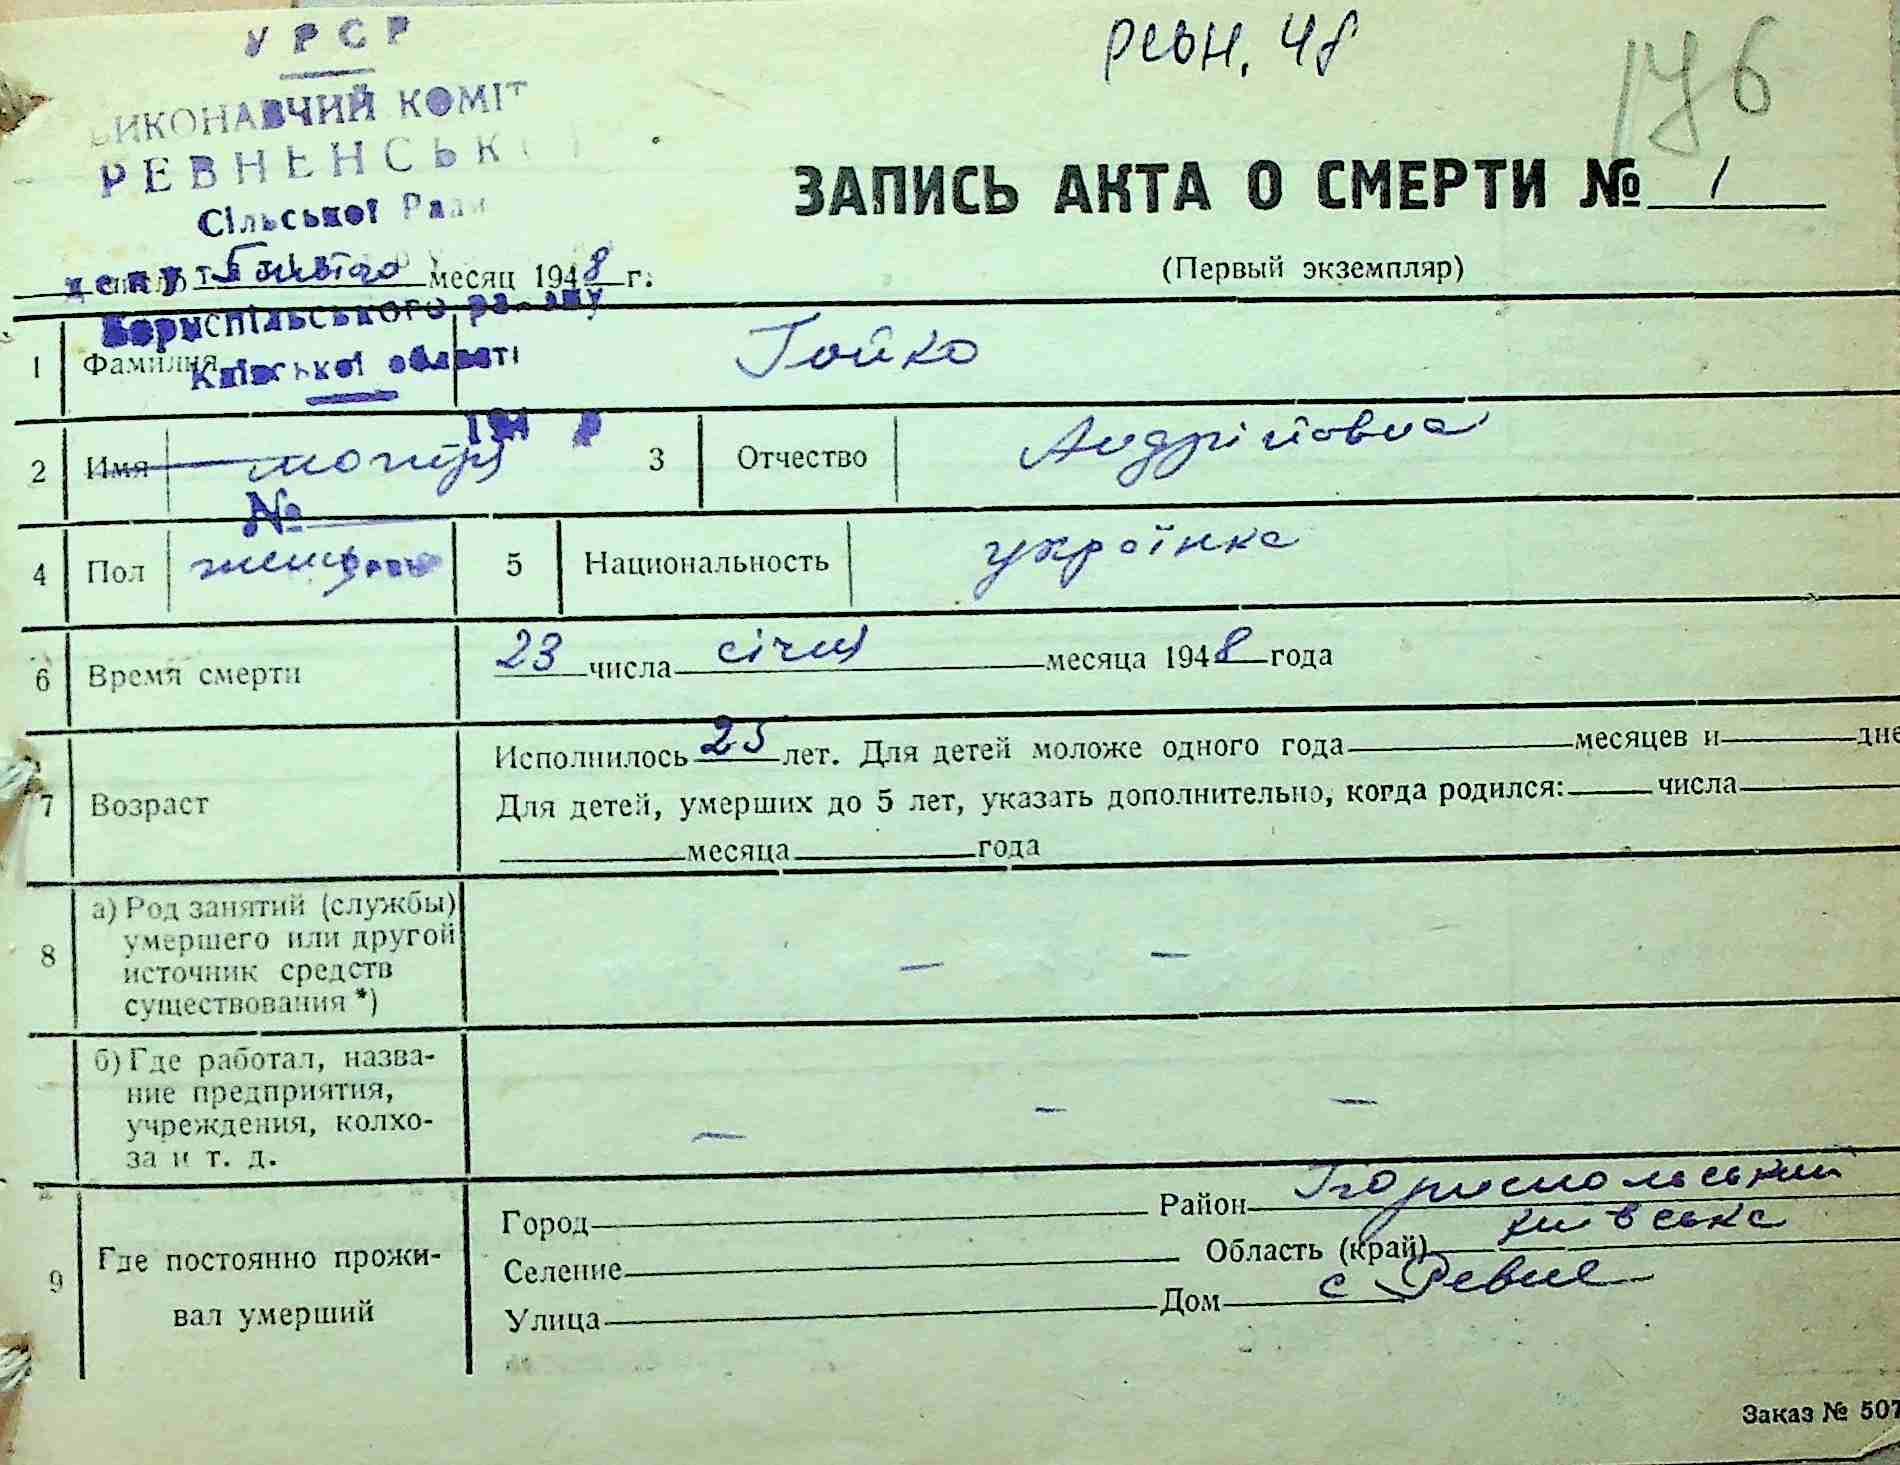 УРСР
ВИКОНАВЧИЙ КОМІТ
РЕВНЕНСЬК
Сільської Ради
депутатів
Бориспільського району
Київської області
194 р
№
Ревн. 48
176
ЗАПИСЬ АКТА О СМЕРТИ № 1
(Первый экземпляр)
число 5 лютого месяц 1948 г.
1 Фамилия Гойко
2 Имя Мотря 3 Отчество Андріївна
4 Пол 5 Национальность українка
6 Время смерти 23 числа січня месяца 1948 года
7 Возраст
Исполнилось 25 лет. Для детей моложе одного года месяцев и дне
Для детей, умерших до 5 лет, указать дополнительно, когда родился: числа
месяца года
8 а) Род занятий (службы)
умершего или другой
источник средств
существования *)
— —
б) Где работал, назва-
ние предприятия,
учреждения, колхо-
за и т. д.
— — —
9 Где постоянно прожи-
вал умерший
Город Район Бориспольський
Селение Область (край) київська
Улица Дом с Ревне
Заказ № 507